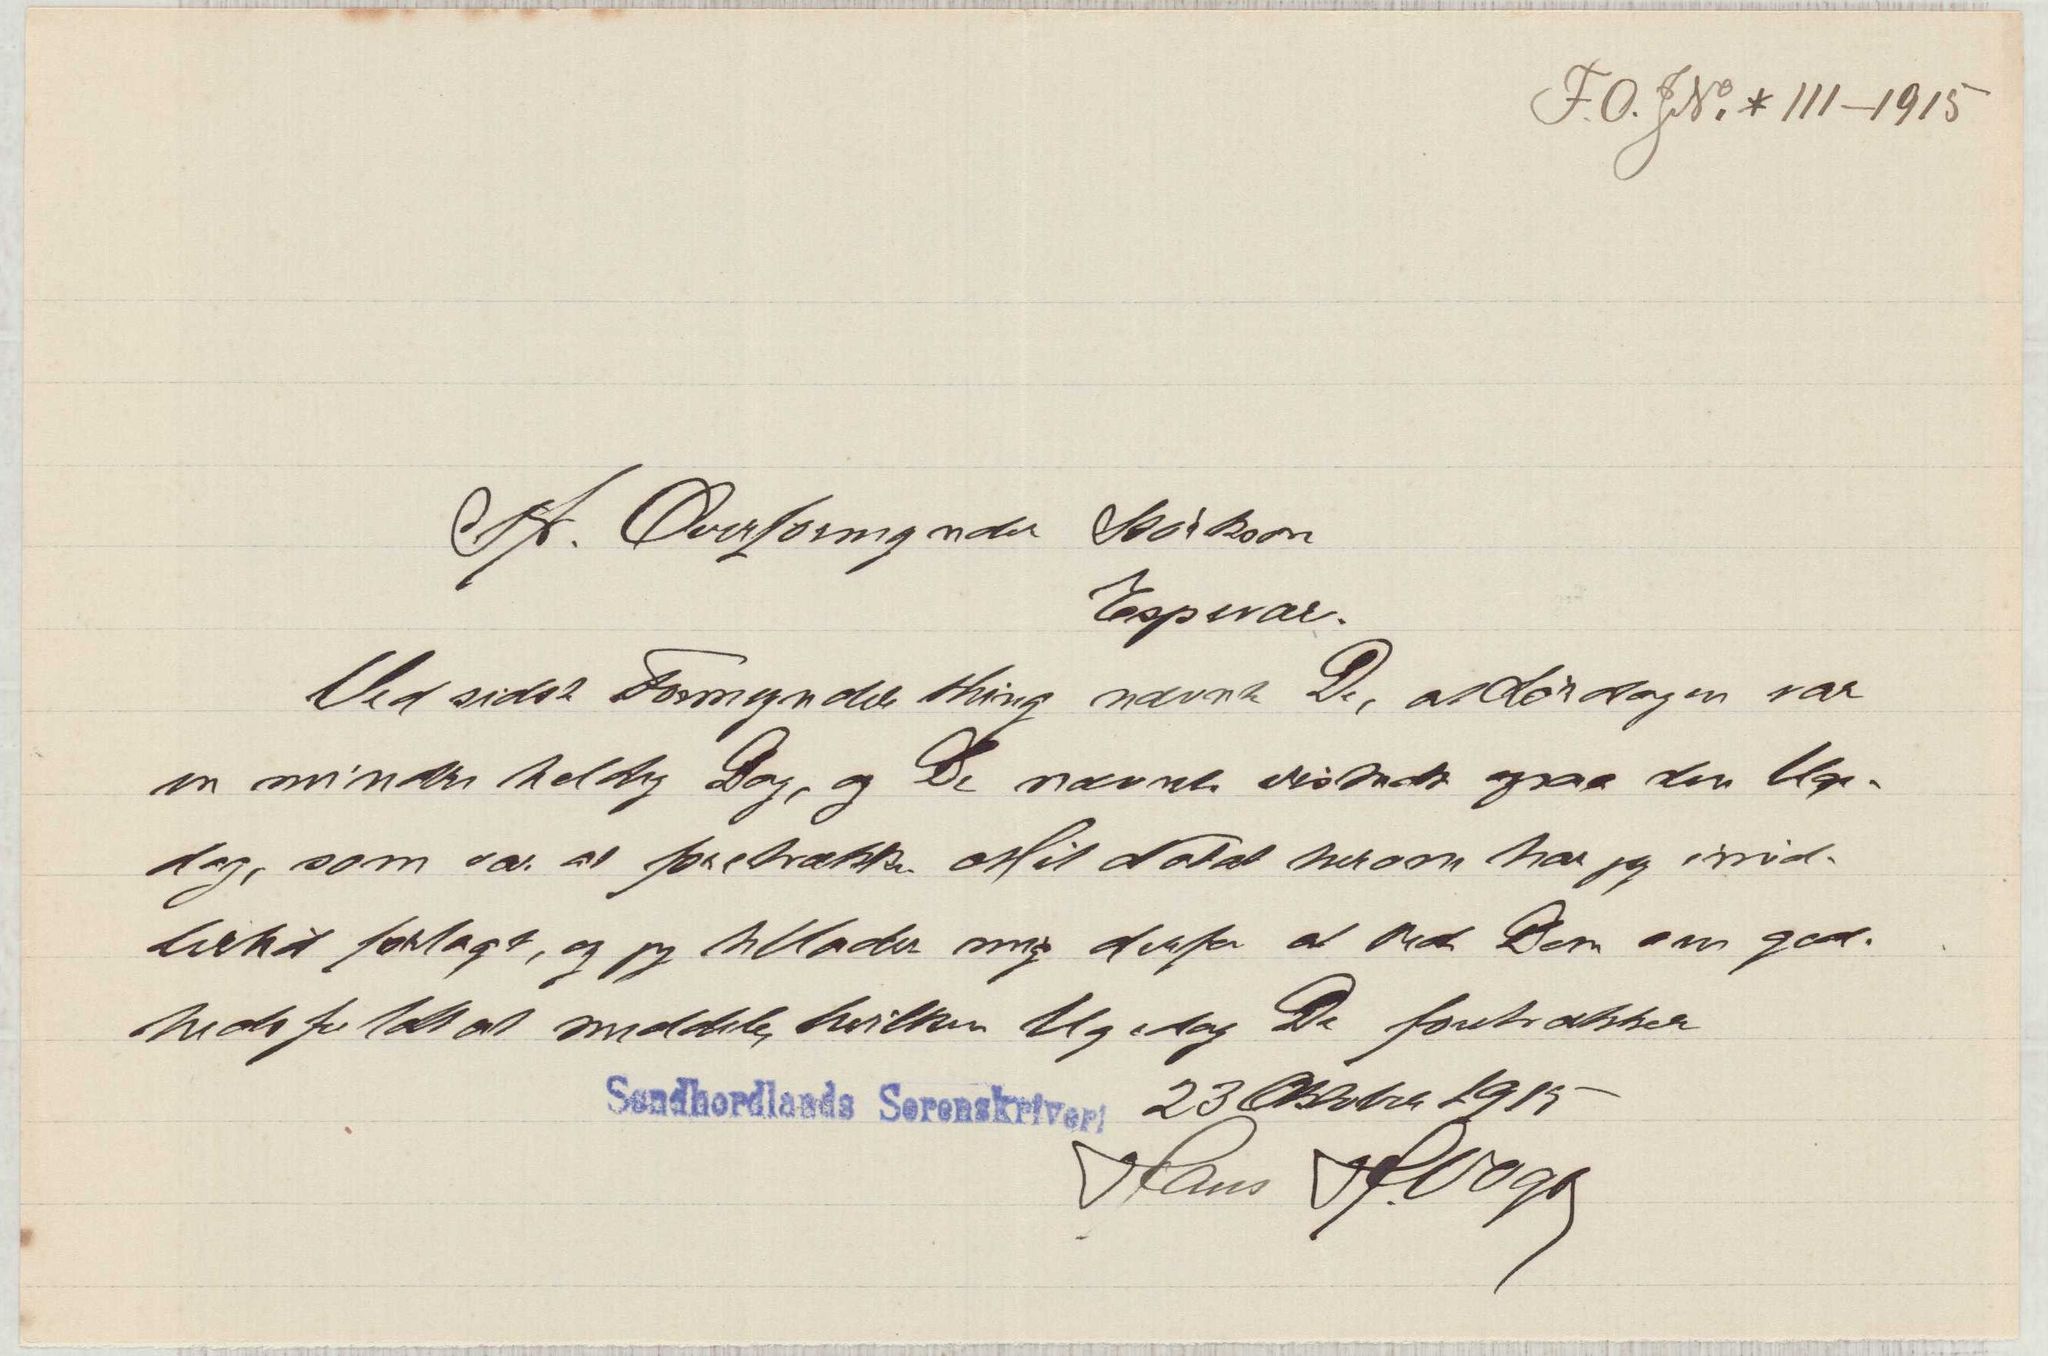 F.O. J.No. * 111–1915
Hr. Overformynder Størkson
Espevær.
Ved sidste Formynderthing nævnte De, at Lördagen var
en mindre heldig Dag, og De nævnte vistnok ogsaa den Uge-
dag, som var at foretrække. Mit Notat herom har jeg imid-
lertid forlagt, og jeg tillader mig derfor at bede Dem om god-
hedsfuldt at meddele, hvilken Ugedag De foretrækker
Søndhordlands Sorenskriveri 23 Oktober 1915
Hans H. Vogt